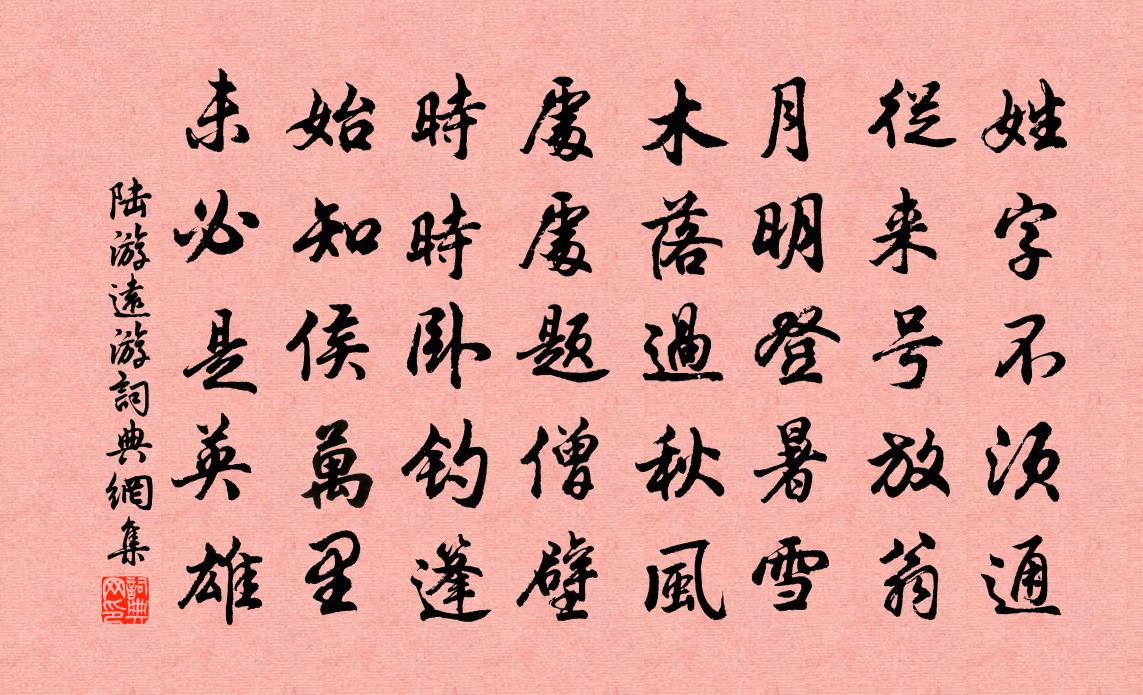 姓字不须通
從来号放翁
月明登暑雪
木落過秋風
處處題僧壁
時時卧釣蓬
始知侯萬里
未必是英雄
陆游遠游詞典網集
詞典网印